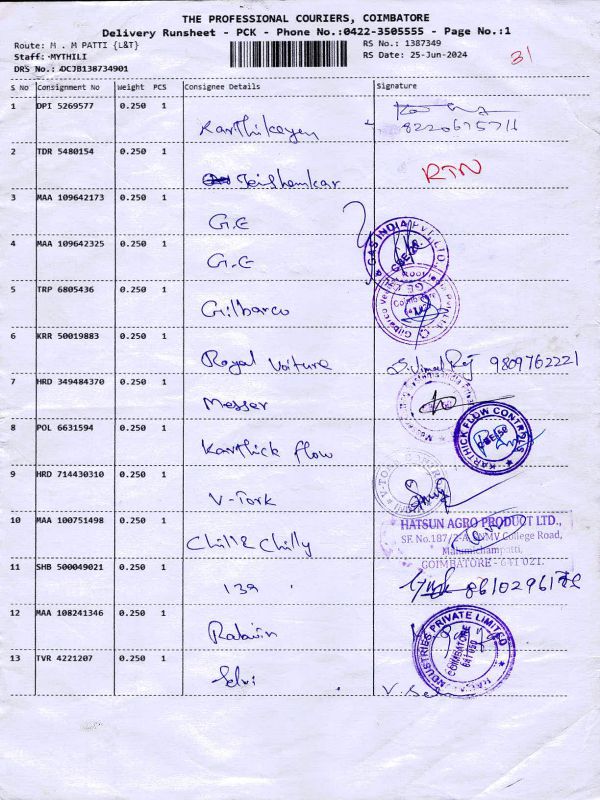 THE PROFESSIONAL COURIERS, COIMBATORE
Delivery Runsheet - PCK - Phone No.:0422-3505555 - Page No.:1
Route: M . M PATTI {L&T}
RS No.: 1387349
Staff: MYTHILI
RS Date: 25-Jun-2024
DRS No.: DCJB138734901
31
S No Consignment No Weight PCS Consignee Details Signature
1 DPI 5269577 0.250 1 Karthikeyen
8220615711
2 TDR 5480154 0.250 1 Jeishankar RTN
3 MAA 109642173 0.250 1 G.E
4 MAA 109642325 0.250 1 G.E
5 TRP 6805436 0.250 1 Gilbarco
6 KRR 50019883 0.250 1 Royal Voiture S.Vimal Raj 9809762221
7 HRD 349484370 0.250 1 Messer
8 POL 6631594 0.250 1 Karthick flow
KARTHICK FLOW CONTROLS
9 HRD 714430310 0.250 1 V-Tork
10 MAA 100751498 0.250 1 Chill & Chilly
HATSUN AGRO PRODUCT LTD.,
SF. No.187/2-A, VMV College Road,
Malumichampatti,
COIMBATORE - 641 021.
11 SHB 500049021 0.250 1 139
12 MAA 108241346 0.250 1
INDUSTRIES PRIVATE LIMITED
COIMBATORE
641 050
13 TVR 4221207 0.250 1 Selvi